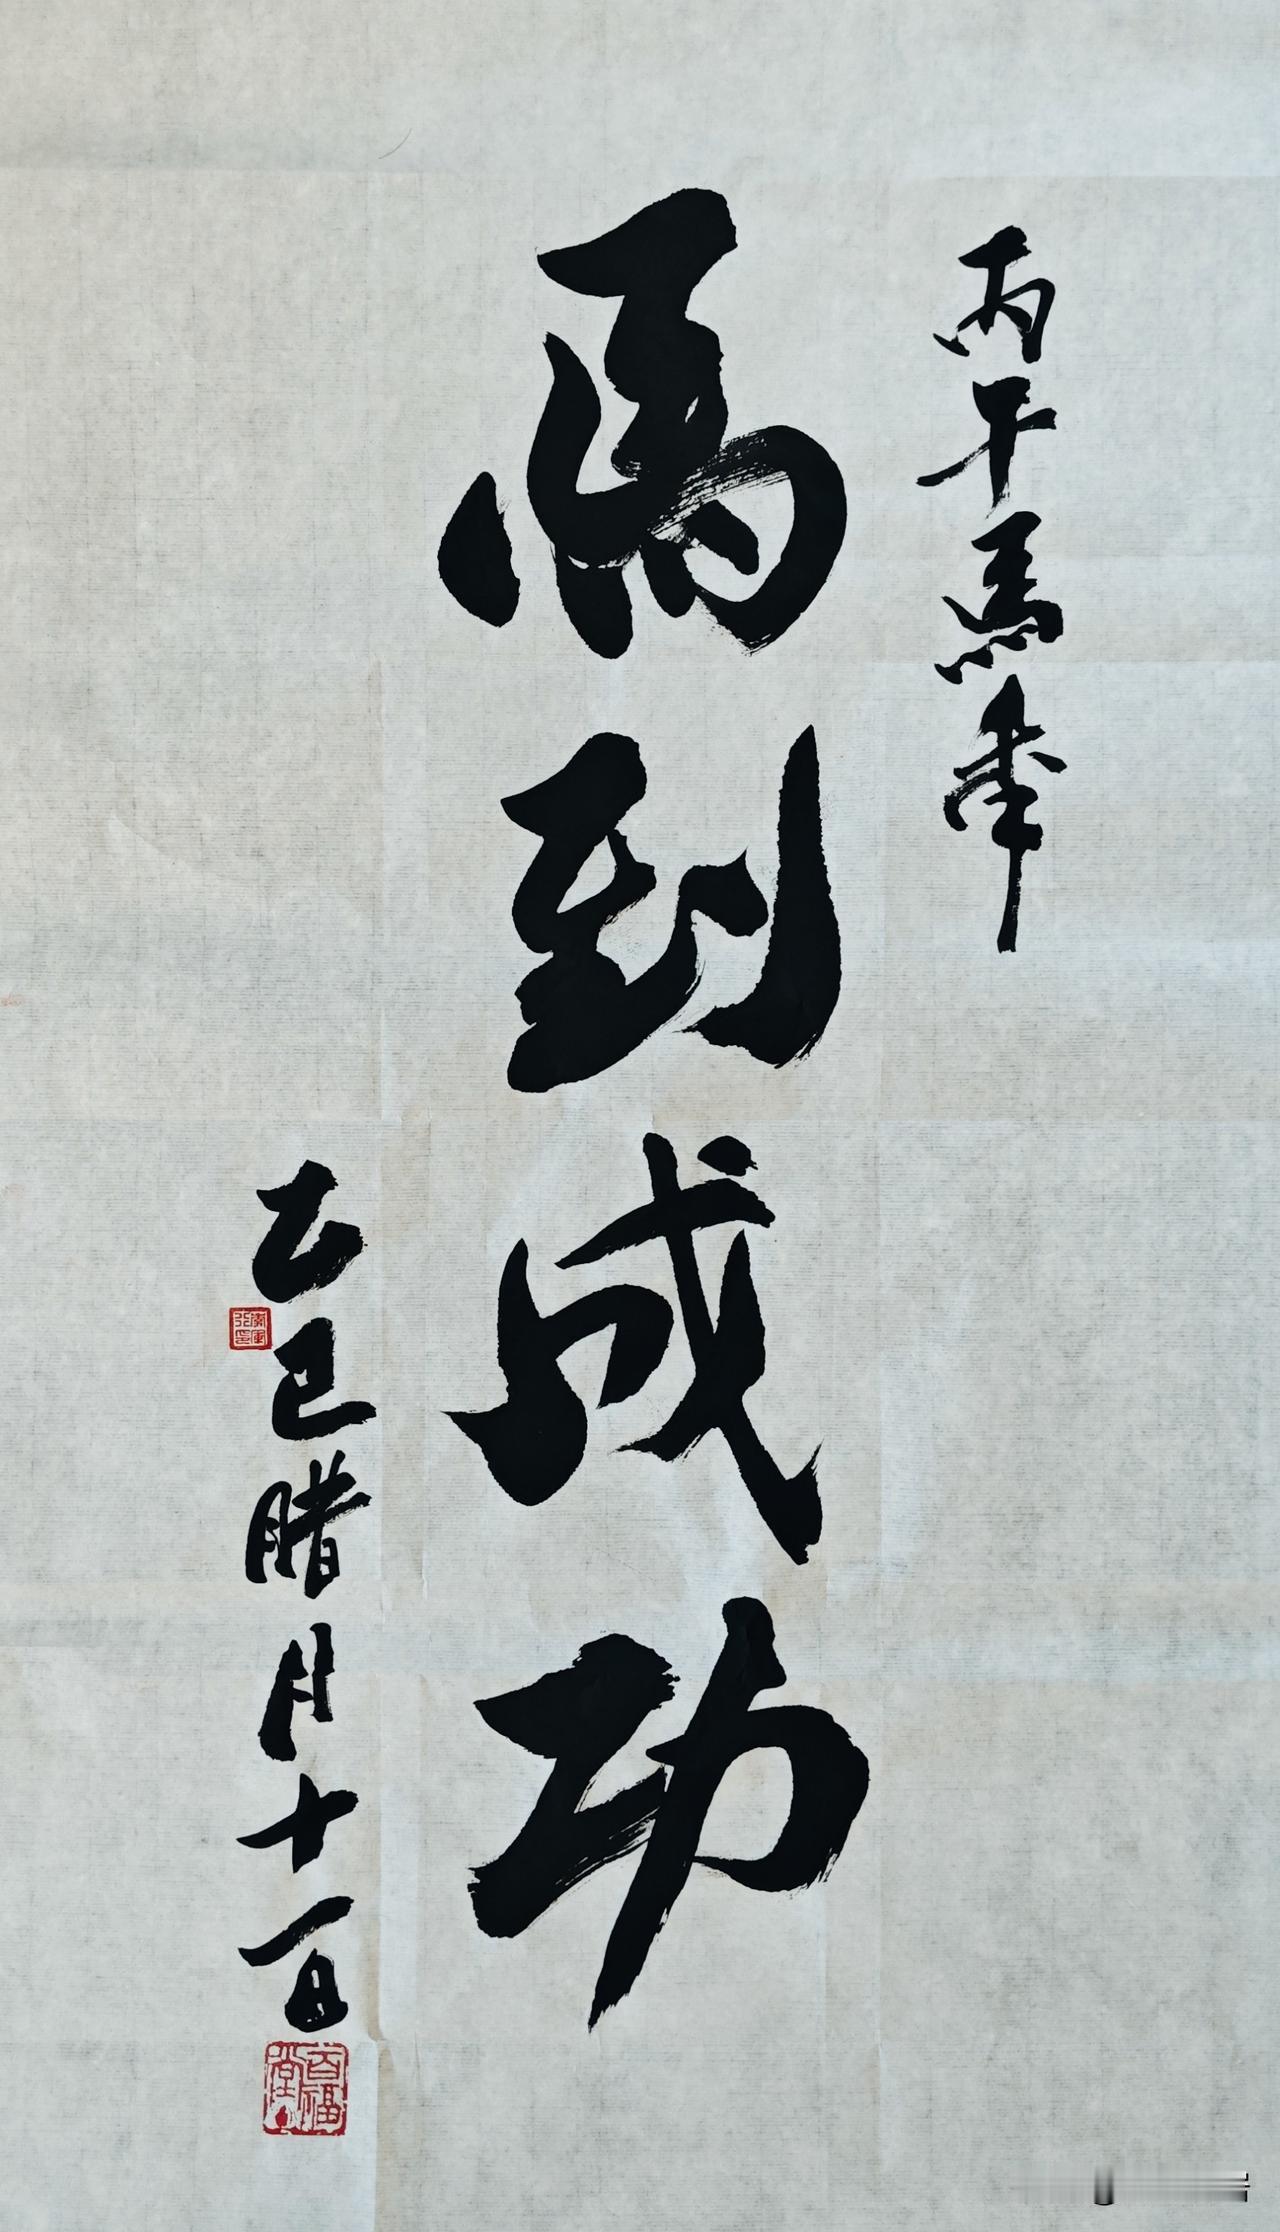 丙午馬年
馬到成功
乙巳腊月十一日
百福堂